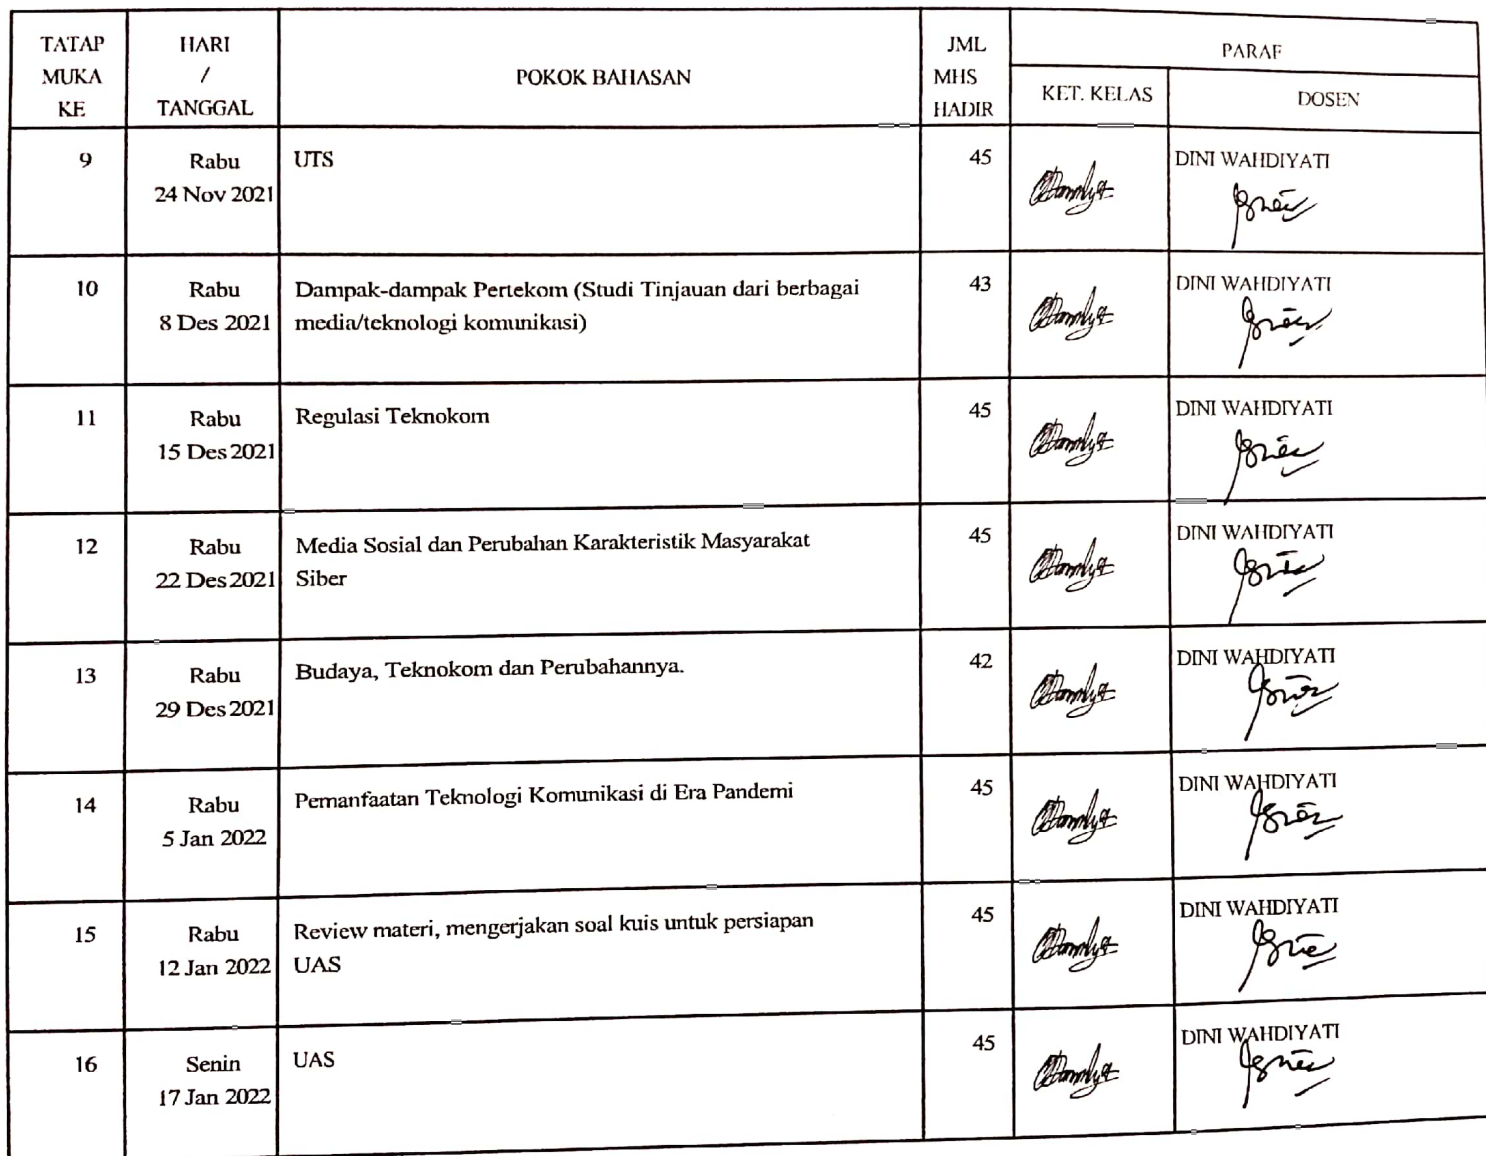 TATAP MUKA KE
HARI / TANGGAL
POKOK BAHASAN
JML MHS HADIR
PARAF
KET. KELAS
DOSEN
9
Rabu
24 Nov 2021
UTS
45
DINI WAHDIYATI
10
Rabu
8 Des 2021
Dampak-dampak Pertekom (Studi Tinjauan dari berbagai
media/teknologi komunikasi)
43
DINI WAHDIYATI
11
Rabu
15 Des 2021
Regulasi Teknokom
45
DINI WAHDIYATI
12
Rabu
22 Des 2021
Media Sosial dan Perubahan Karakteristik Masyarakat
Siber
45
DINI WAHDIYATI
13
Rabu
29 Des 2021
Budaya, Teknokom dan Perubahannya.
42
DINI WAHDIYATI
14
Rabu
5 Jan 2022
Pemanfaatan Teknologi Komunikasi di Era Pandemi
45
DINI WAHDIYATI
15
Rabu
12 Jan 2022
Review materi, mengerjakan soal kuis untuk persiapan
UAS
45
DINI WAHDIYATI
16
Senin
17 Jan 2022
UAS
45
DINI WAHDIYATI